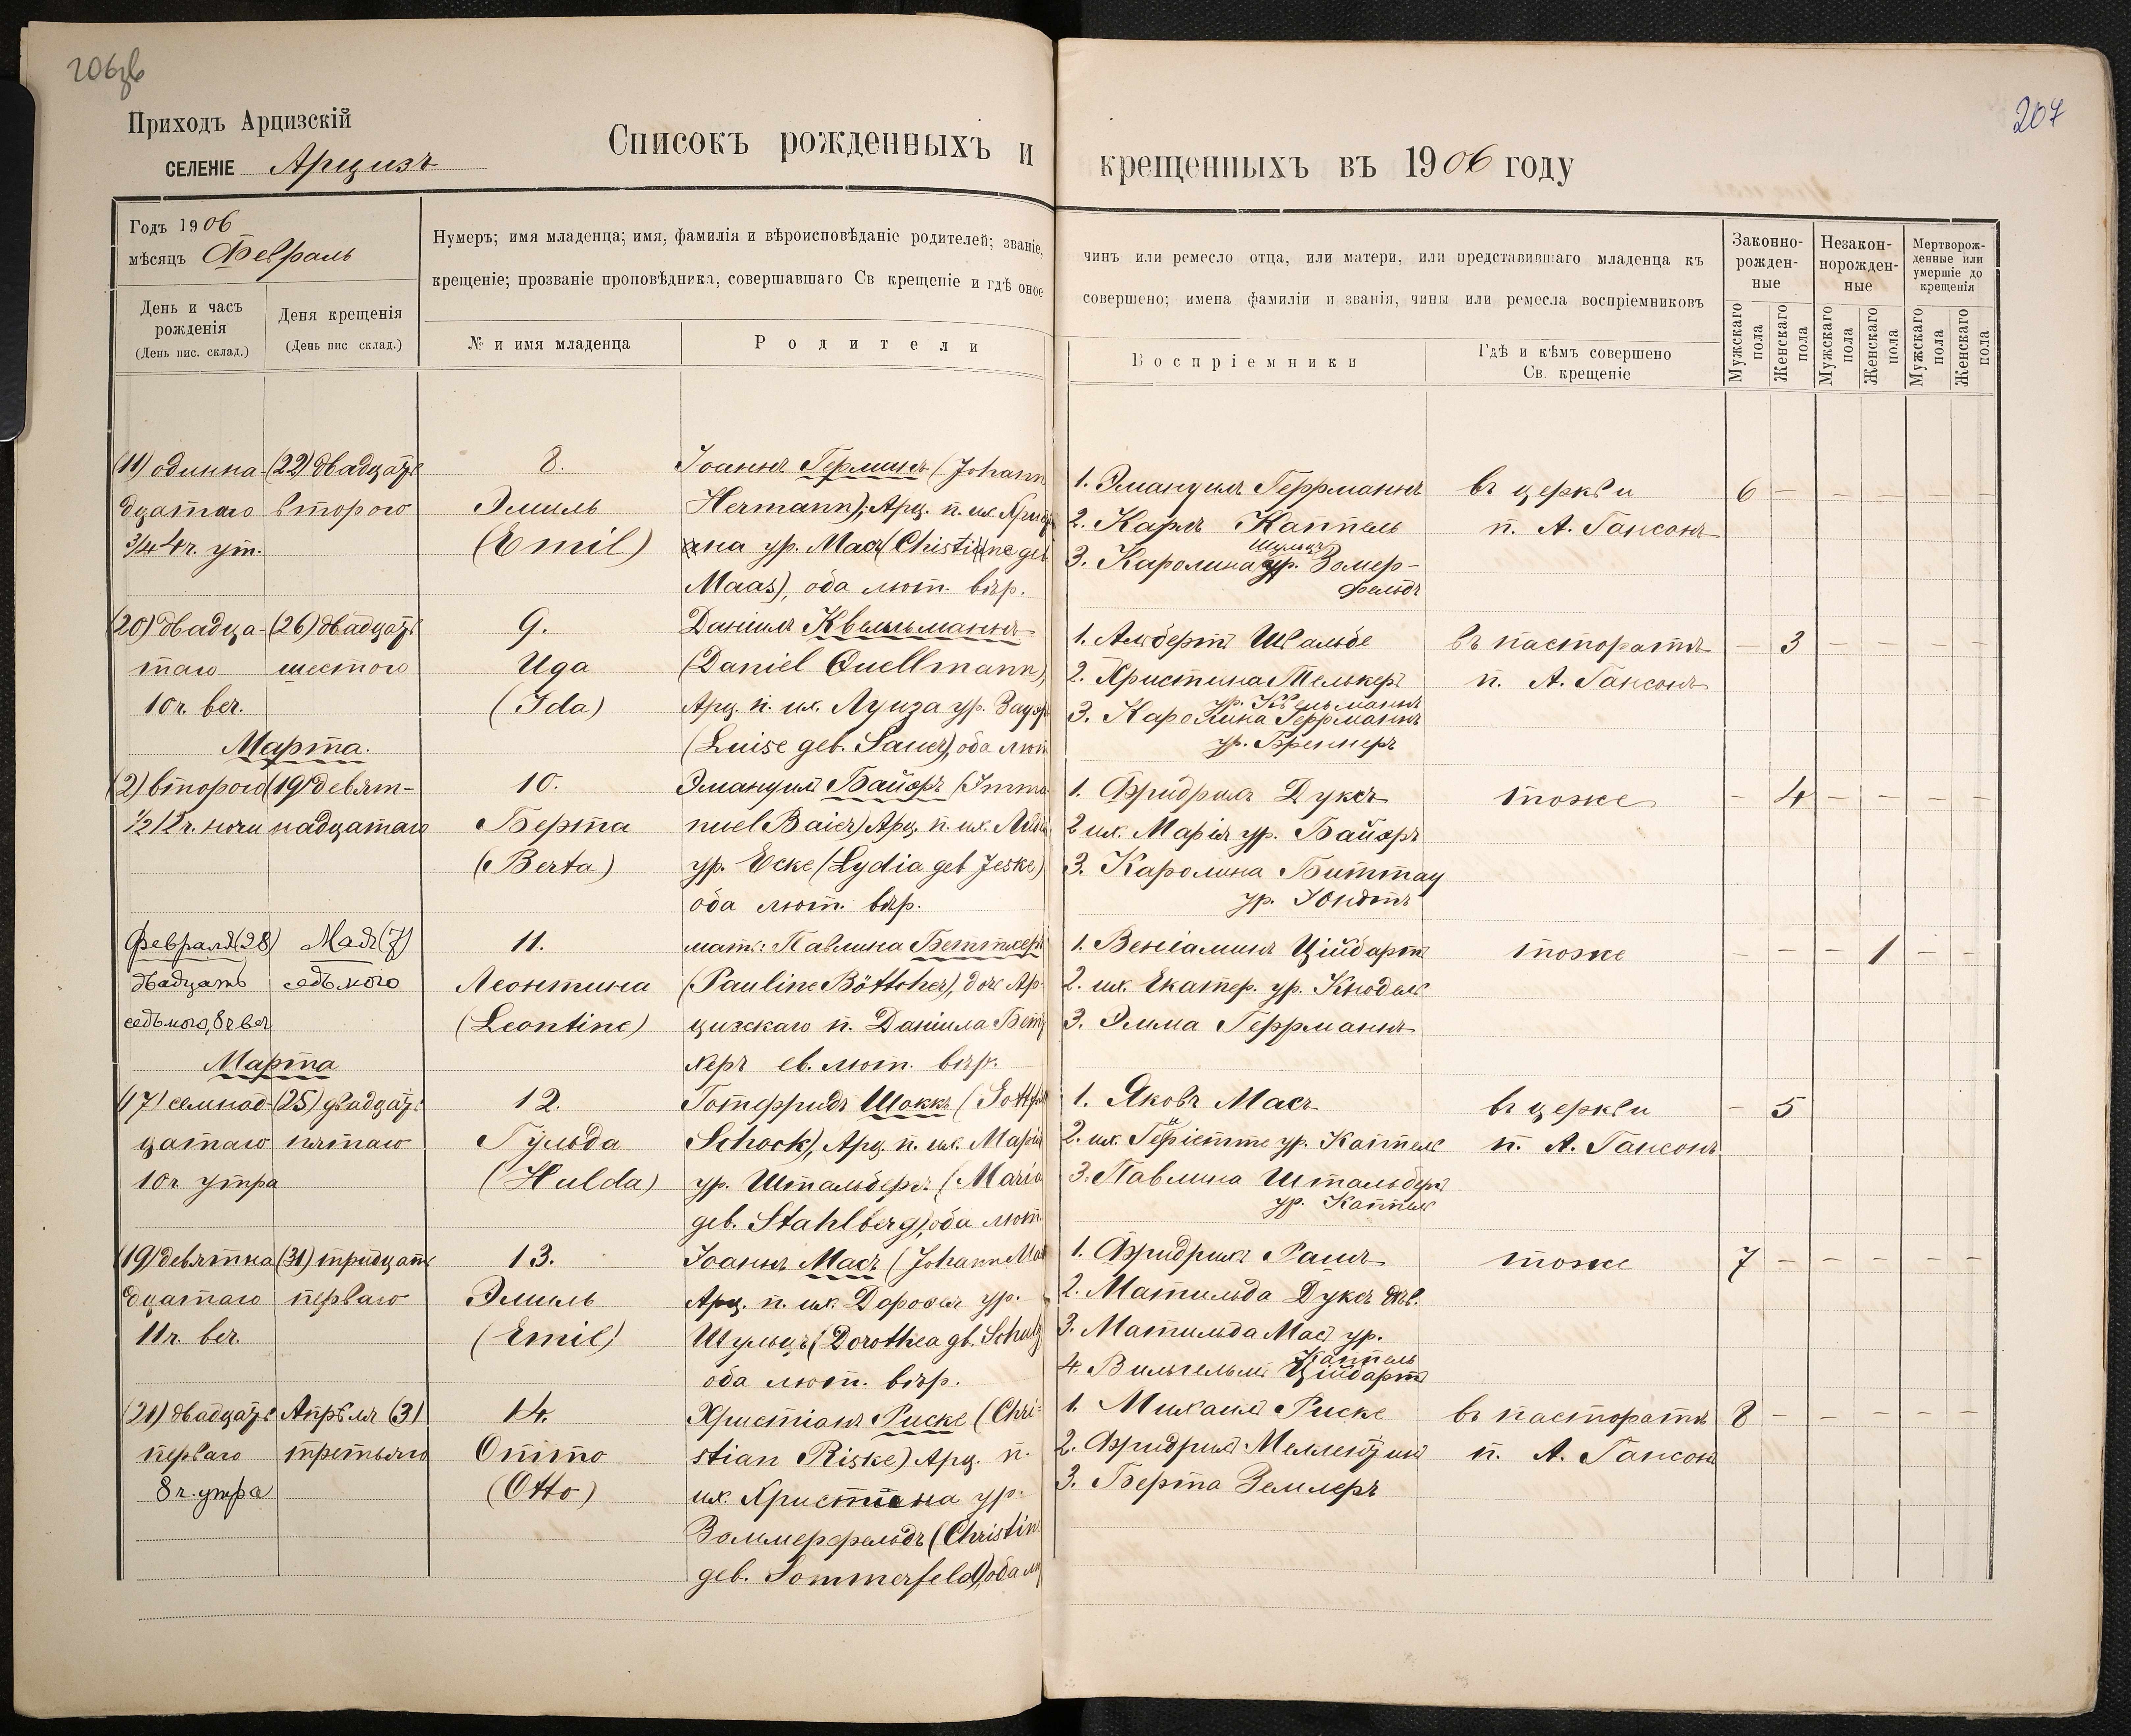 206зв
207
Приходъ Арцизскій
СЕЛЕНІЕ Арцизъ
Списокъ рожденныхъ и крещенныхъ въ 1906 году
Годъ 1906
мѣсяцъ Февраль
День и часъ
рожденія
(День пис. склад.)
Деня крещенія
(День пис склад.)
Нумеръ; имя младенца; имя, фамилія и вѣроисповѣданіе родителей; званіе, чинъ или ремесло отца, или матери, или представившаго младенца къ
крещеніе; прозваніе проповѣдника, совершавшаго Св крещеніе и гдѣ оное совершено; имена фамиліи и званія, чины или ремесла воспріемниковъ
№ и имя младенца
Родители
Воспріемники
Гдѣ и кѣмъ совершено
Св. крещеніе
Законно-
рожден-
ные
Незакон-
норожден-
ные
Мертворож-
денные или
умершіе до
крещенія
Мужскаго пола
Женскаго пола
Мужскаго пола
Женскаго пола
Мужскаго пола
Женскаго пола
(11) одинна-
дцатаго
3/4 4 ч. ут.
(22) двадцать
второго
8.
Эмиль
(Emil)
Іоаннъ Германъ (Johann
Hermann), Арц. п. их. Христі
на ур. Мас (Christine geb
Maas), оба лют. вѣр.
1. Эмануилъ Геррманнъ
2. Карлъ Каппель
Шульцъ
3. Каролина ур. Зомер-
фельдъ
въ церкви
п. А. Гансонъ
6 – – – – –
(20) двадца-
таго
10 ч. веч.
(26) двадцать
шестого
9.
Ида
(Ida)
Даніилъ Квельманнъ
(Daniel Quellmann),
Арц. п. их. Луиза ур. Зауэр
(Luise geb. Sauer), оба лют
1. Альбертъ Швальбе
2. Христина Телькеръ
ур. Квельманнъ
3. Каролина Геррманнъ
ур. Бреннеръ
въ пасторатѣ
п. А. Гансонъ
– 3 – – – –
Марта.
(2) второго
1/2 12 ч. ночи
(19) девят-
надцатаго
10.
Берта
(Berta)
Эмануилъ Байэръ (Imma
nuel Baier) Арц. п. их. Лидія
ур. Еске (Lydia geb Jeske)
оба лют. вѣр.
1. Фридрихъ Дуксъ
2 их. Марія ур. Байэръ
3. Каролина Биттау
ур. Юндтъ
тоже
– 4 – – – –
Февраля (28)
двадцать
седьмого, 8 ч веч
Мая (7)
седьмого
11.
Леонтина
(Leontine)
мать: Павлина Беттхеръ
(Pauline Böttcher), дочь Ар-
цизскаго п. Даніила Бетт
херъ ев. лют. вѣр.
1. Веніаминъ Ційбартъ
2. их. Екатер. ур. Кнодель
3. Эмма Геррманнъ
тоже
– – – 1 – –
Марта
(17) семнад-
цатаго
10 ч утра
(25) двадцать
пятаго
12.
Гульда
(Hulda)
Готфридъ Шоккъ (Gottfri
Schock), Арц. п. их. Марія
ур. Штальбергъ (Maria
geb. Stahlberg), оба лют.
1. Яковъ Масъ
2. их. Генріетте ур. Каппель
3. Павлина Штальбергъ
ур. Каппель
въ церкви
п. А. Гансонъ
– 5
(19) девятна
дцатаго
11 ч. веч.
(31) тридцать
перваго
13.
Эмиль
(Emil)
Іоаннъ Масъ (Johann Maa
Арц. п. их. Доротея ур.
Шульцъ (Dorothea gb. Schulz
оба лют. вѣр.
1. Фридрихъ Рашъ
2. Матильда Дуксъ дѣв.
3. Матильда Мас ур.
Каппель
4. Вильгельмъ Ційбартъ
тоже
7 – – – – –
(21) двадцать
перваго
8 ч. утра
Апрѣля (3)
третьяго
14.
Отто
(Otto)
Христіанъ Риске (Chri-
stian Riske) Арц. п.
их. Христина ур.
Зоммерфельдъ (Christin
geb. Sommerfeld), оба лю
1. Михаилъ Риске
2. Фридрихъ
3. Берта Земмеръ
въ пасторатѣ
п. А. Гансонъ
8 – – – – –